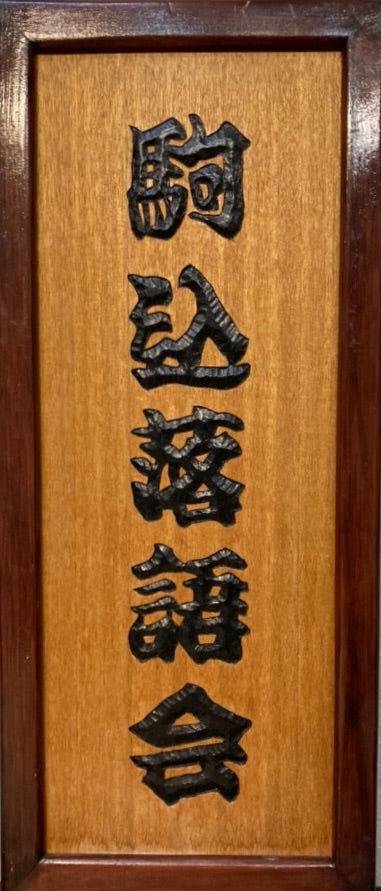 駒込落語会